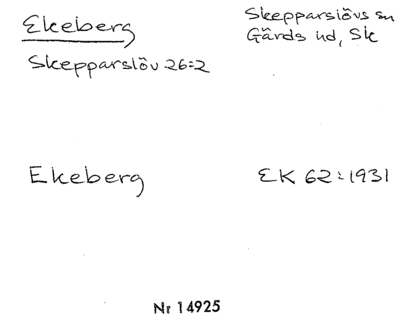 Ekeberg
Skepparslövs sn
Gärds hd, Sk
Skepparslöv 26:2
Ekeberg
EK 62:1931
Nr 14925